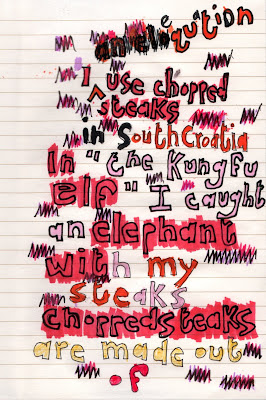 an equation
I use chopped
steaks
in South Croatia
In "the Kung Fu
elf" I caught
an elephant
with my
steaks
choppedsteaks
are made out
of